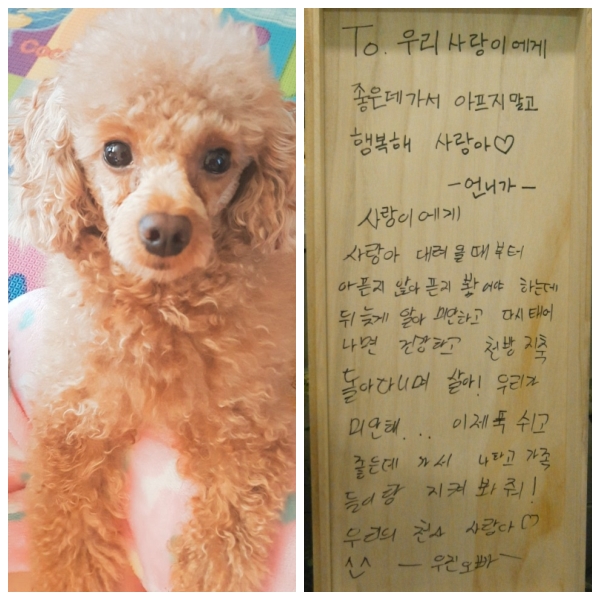 To. 우리 사랑이에게
좋은데가서 아프지말고
행복해 사랑아♡
-언니가-
사랑이에게
사랑아 데려올때부터
아픈지 안아픈지 봤어야 하는데
뒤늦게 알아 미안하고 다시 태어
나면 건강하고 천방 지축
돌아다니며 살아! 우리가
미안해... 이제 푹 쉬고
좋은데 가서 나하고 가족
들이랑 지켜 봐 줘!
우리의 천사 사랑아♡
^^ - 우진오빠 -